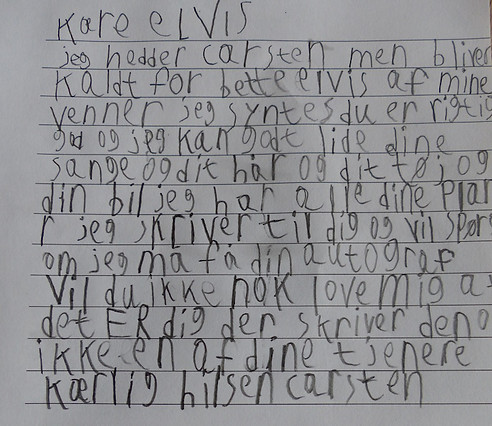 kare ELVIS
jeg hedder carsten men bliver
kaldt for bette elvis af mine
venner jeg syntes du er rigtig
god og jeg kan godt lide dine
sange og dit hår og dit tøj og
din bil jeg har alle dine plan
r jeg skriver til dig og vil spør
om jeg ma få din autograf
Vil du ikke nok love mig a
det ER dig der skriver den o
ikke en af dine tjenere
kærlig hilsen carsten